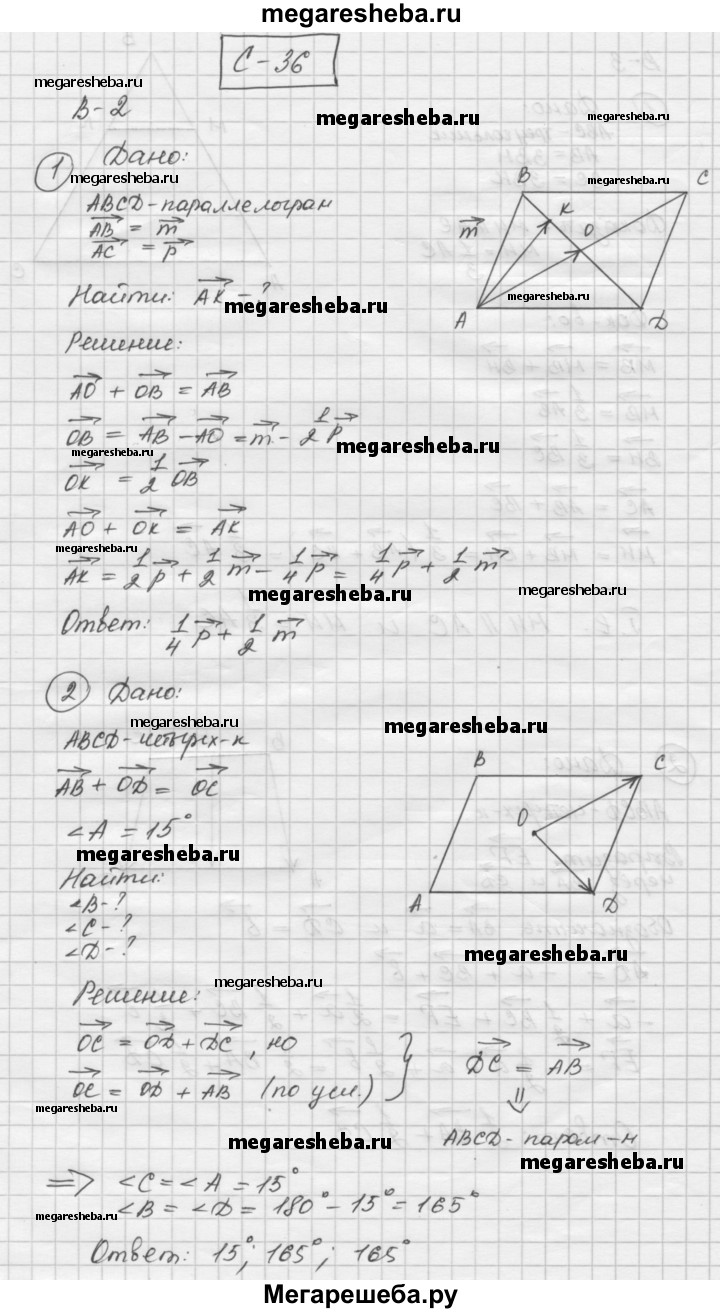 megaresheba.ru
С-36
megaresheba.ru
В-2
megaresheba.ru
1 Дано:
megaresheba.ru
ABCD-параллелограм
AB = m
AC = p
B C
megaresheba.ru
K O
m
megaresheba.ru
A D
Найти: AK - ?
megaresheba.ru
Решение:
AO + OB = AB
OB = AB - AO = m - 1/2 p
megaresheba.ru
megaresheba.ru
OK = 1/2 OB
AO + OK = AK
megaresheba.ru
AK = 1/2 p + 1/2 m - 1/4 p = 1/4 p + 1/2 m
megaresheba.ru
megaresheba.ru
Ответ: 1/4 p + 1/2 m
2 Дано:
megaresheba.ru
megaresheba.ru
ABCD-четырх-к
AB + OD = OC
∠A = 15°
megaresheba.ru
B C
O
A D
Найти:
∠B-?
∠C-?
∠D-?
megaresheba.ru
megaresheba.ru
Решение:
OC = OD + DC, но
OC = OD + AB (по усл.) } DC = AB
megaresheba.ru
⇓
ABCD-парал-м
megaresheba.ru
megaresheba.ru
⇒ ∠C = ∠A = 15°
∠B = ∠D = 180° - 15° = 165°
megaresheba.ru
Ответ: 15°; 165°; 165°
Мегарешеба.ру